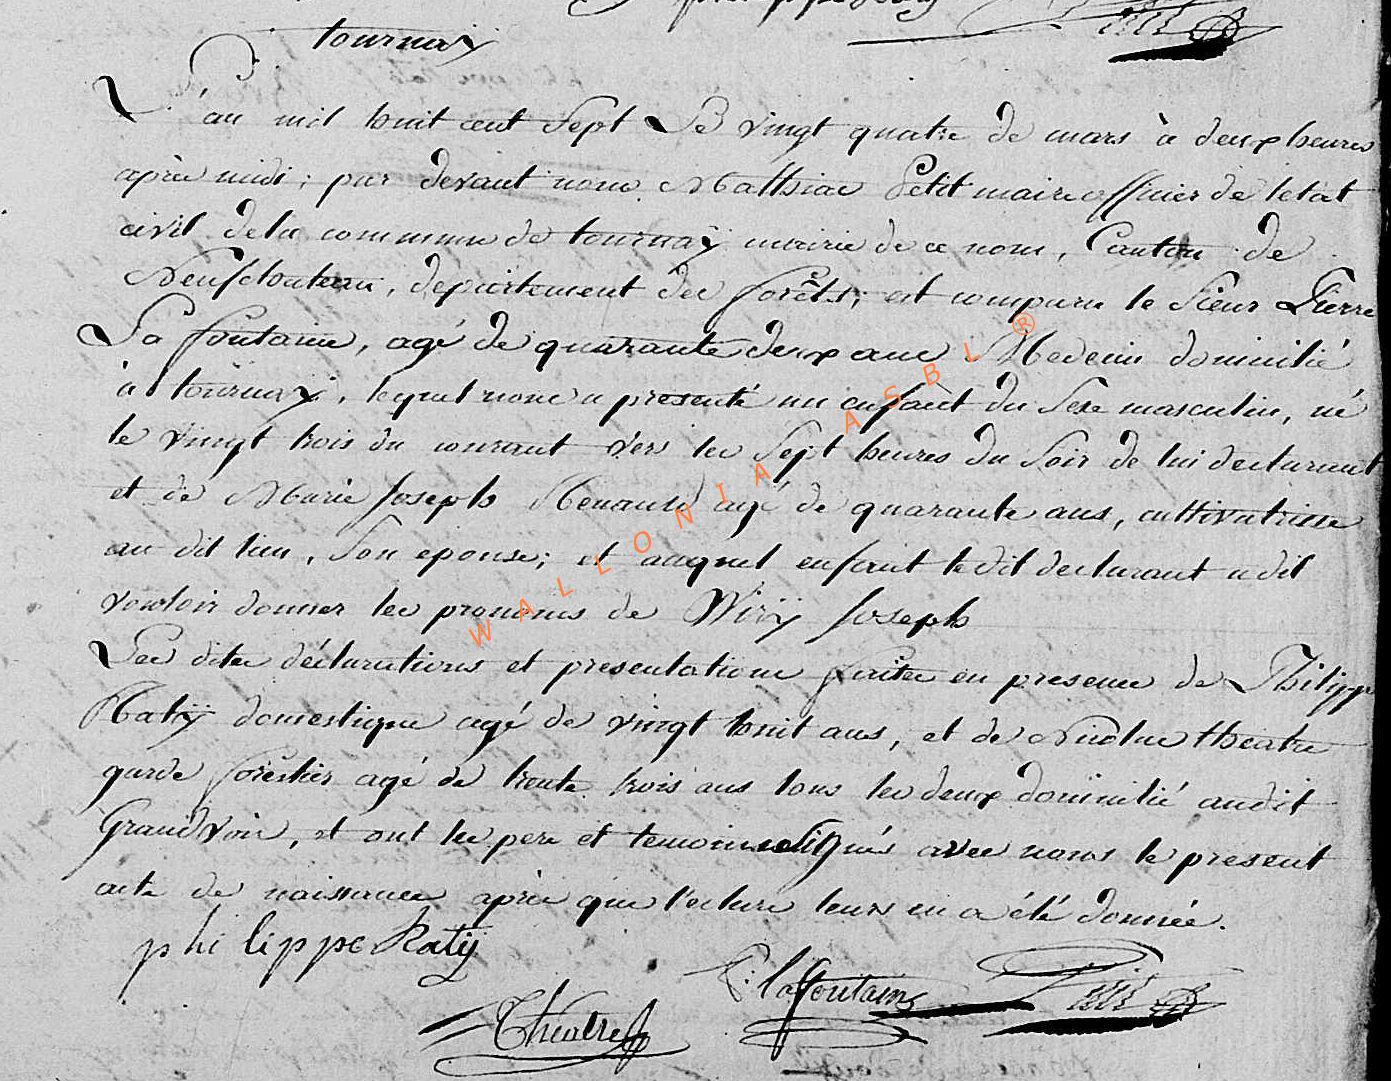 tournay
L'an mil huit cent Sept Le vingt quatre de mars à deux heures
après midi; par devant nous Matthias Petit maire officier de l'etat
civil dela commune de tournaÿ mairie de ce nom, Canton de
Neufchateau, departement des forêts; est comparu le Sieur Pierre
La fontaine, agé de quarante deux ans Medecin domicilié
à tournaÿ, lequel nous a presenté un enfant du Sexe masculin, né
le vingt trois du courant vers les Sept heures du Soir de lui declarant
et de Marie Joseph Renauld agé de quarante ans, cultivatrisse
au dit lieu, Son epouse; et auquel enfant le dit declarant a dit
vouloir donner les prenoms de Wiriÿ Joseph
Les dites déclarations et presentations faites en presence de Philippe
Ratiÿ domestique agé de vingt huit ans, et de Nicolas theatre
garde forêstier agé de trente trois ans tous les deux domicilié audit
Grandvoir, et ont les pere et temoins signés avec nous le present
acte de naissance après que lecture leurs en a été donnée.
philippe Ratiÿ
P: lafontaine
Petit
Théatre
WALLONIA ASBL ®